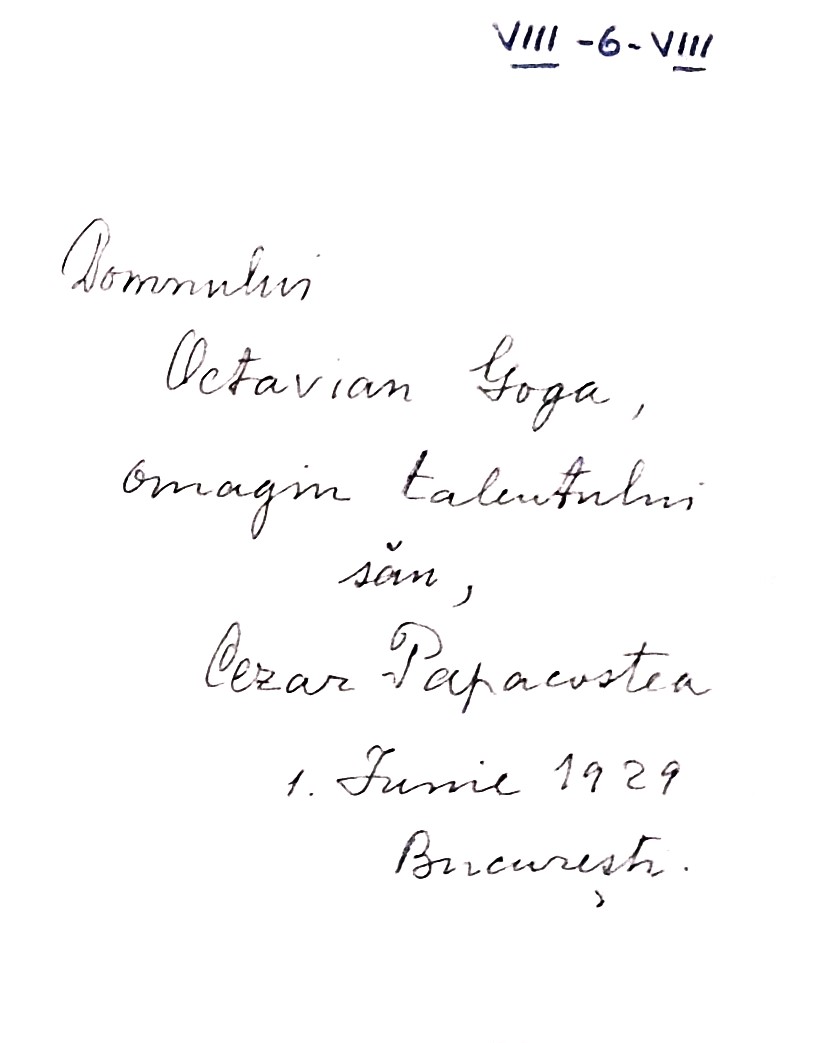 VIII -6- VIII
Domnului
Octavian Goga,
omagiu talentului
său,
Cezar Papacostea
1. Iunie 1929
București.